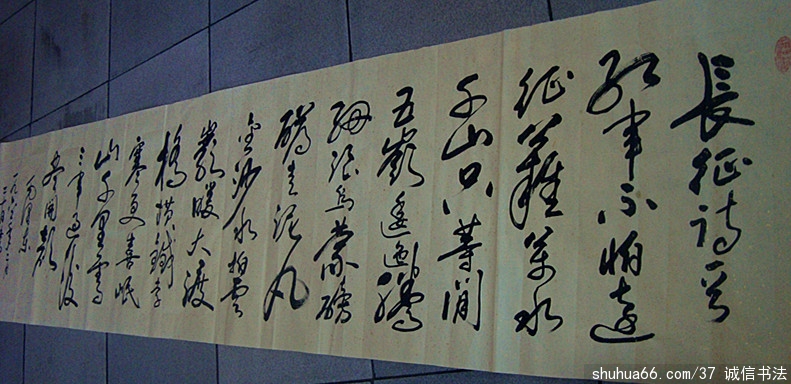 長征詩一首
紅軍不怕遠
征難萬水
千山只等閒
五嶺逶迤騰
細浪烏蒙磅
礴走泥丸
金沙水拍雲
巖暖大渡
橋横鐵索
寒更喜岷
山千里雪
三軍過後
盡開顏
毛澤東
一九六二年
shuhua66.com/37 诚信书法